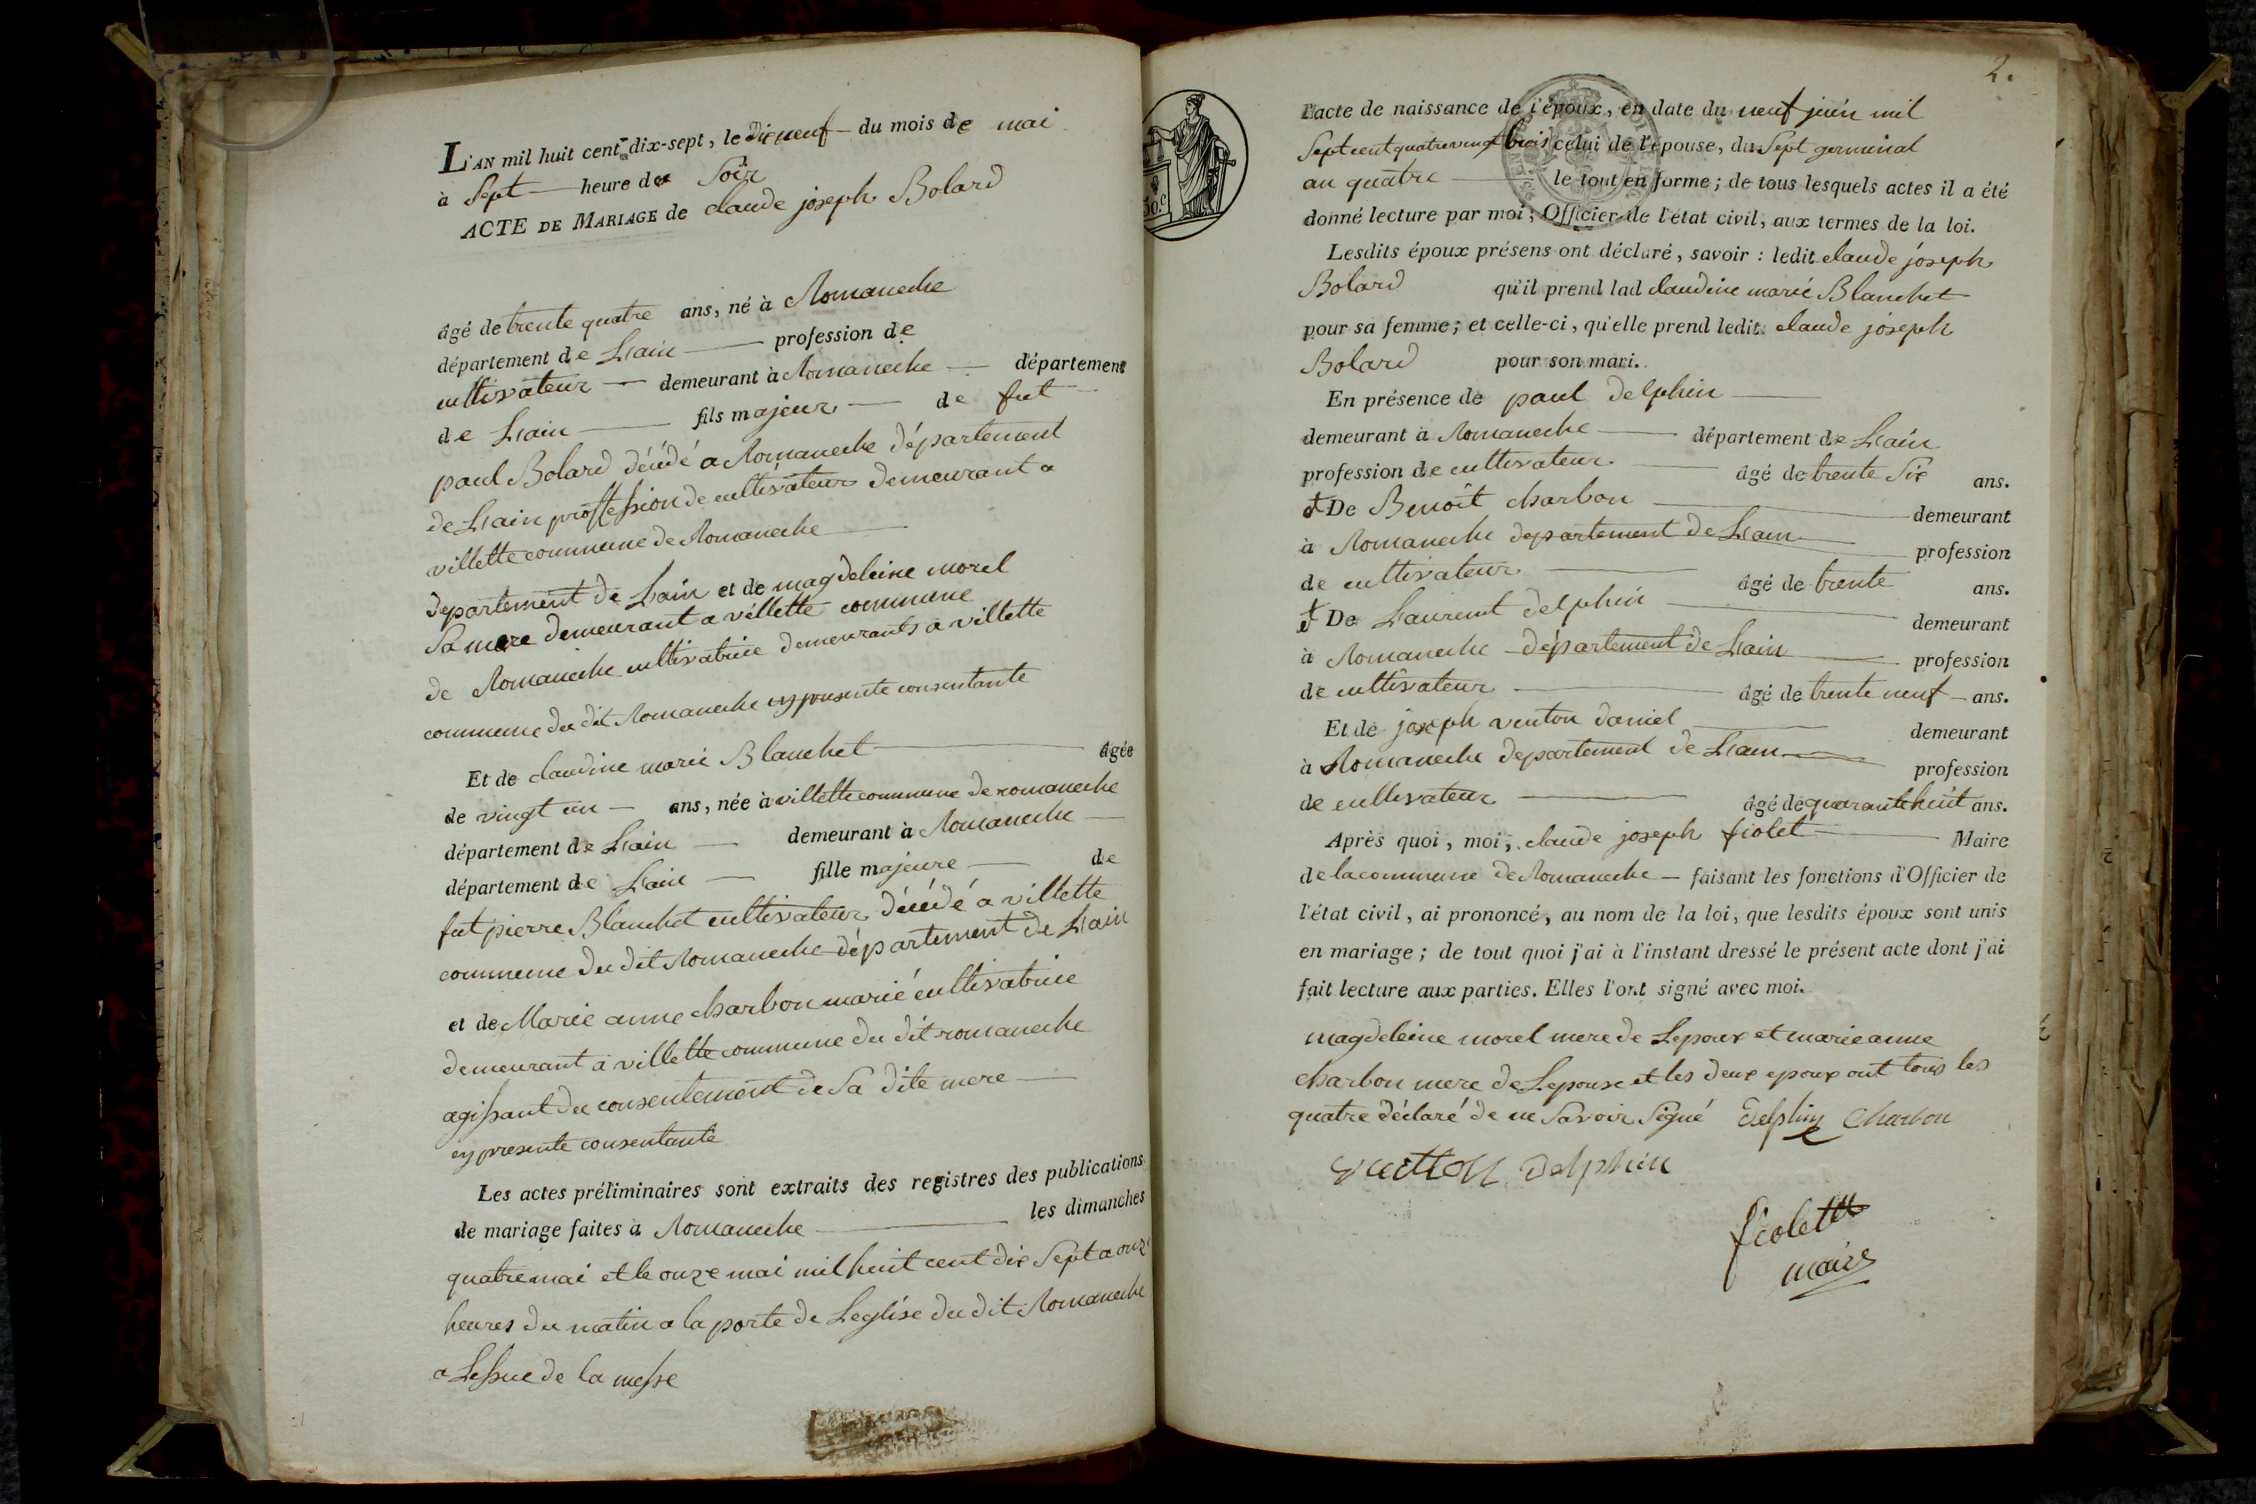 L'AN mil huit cent dix-sept, le dixneuf du mois de mai
à Sept heure du Soir
ACTE DE MARIAGE de claude joseph Bolard
âgé de trente quatre ans, né à Romaneche
département de Lain profession de
cultivateur demeurant à Romaneche département
de Lain fils majeur de fut
paul Bolard décédé a Romaneche département
de Lain proffession de cultivateur demeurant a
villette commune de Romaneche
departement de Lain et de magdeleine morel
Sa mere demeurant a villette commune
de Romaneche cultivatrice demeurants a villette
commune du dit Romaneche cy presente consentante
Et de claudine marie Blanchet âgée
de vingt un ans, née à villette commune de romaneche
département de Lain demeurant à Romaneche
département de Lain fille majeure de
fut pierre Blanchet cultivateur décédé a villette
commune du dit Romaneche département de Lain
et de Marie anne charbon marié cultivatrice
demeurant a villette commune du dit romaneche
agissant du consentement de Sa dite mere
cy presente consentante
Les actes préliminaires sont extraits des registres des publications
de mariage faites à Romaneche les dimanches
quatre mai et le onze mai mil huit cent dix Sept a onze
heures du matin a la porte de Leglise du dit Romaneche
a Lessue de la messe
2.
50.c
L'acte de naissance de l'époux, en date du neuf juin mil
Sept cent quatre vingt trois celui de l'épouse, du Sept germinal
an quatre le tout en forme; de tous lesquels actes il a été
donné lecture par moi, Officier de l'état civil, aux termes de la loi.
Lesdits époux présens ont déclaré, savoir : ledit claude joseph
Bolard qu'il prend lad claudine marie Blanchet
pour sa femme; et celle-ci, qu'elle prend ledit claude joseph
Bolard pour son mari.
En présence de paul delphin
demeurant à Romaneche département de Lain
profession de cultivateur âgé de trente Six ans.
De Benoît charbon demeurant
à Romaneche departement de Lain profession
de cultivateur âgé de trente ans.
De Laurent delphin demeurant
à Romaneche département de Lain profession
de cultivateur âgé de trente neuf ans.
Et de joseph venton daniel demeurant
à Romaneche departement de Lain profession
de cultivateur âgé de quarante huit ans.
Après quoi, moi, claude joseph fiolet Maire
de la commune de Romaneche faisant les fonctions d'Officier de
l'état civil, ai prononcé, au nom de la loi, que lesdits époux sont unis
en mariage; de tout quoi j'ai à l'instant dressé le présent acte dont j'ai
fait lecture aux parties. Elles l'ont signé avec moi.
magdeleine morel mere de Lepoux et marie anne
charbon mere de Lepouse et les deux epoux ont tous les
quatre déclaré de ne Savoir Signé Delphin Charbon
delphin
fiolet
maire